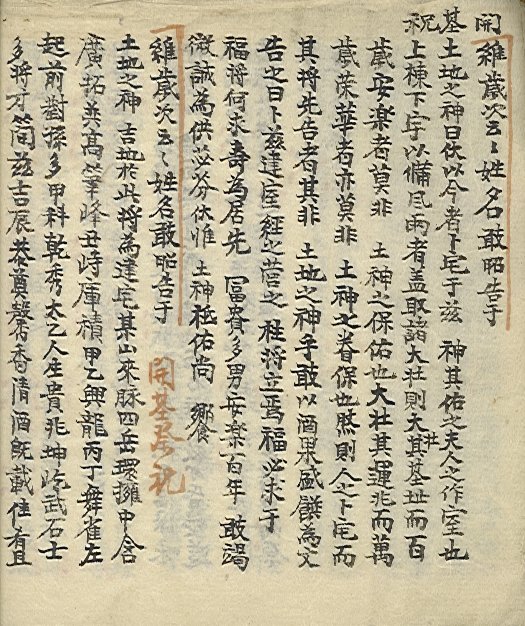 開維歲次云々姓名敢昭告于
基土地之神曰伏以今者卜宅于兹 神其佑之夫人之作室也
祝上棟下宇以備風雨者盖取諸大壮則大其基址而百
歲安楽者莫非 土神之保佑也大壮其運兆而萬
歲荣華者亦莫非 土神之眷保也然則人之卜宅而
其将先告者其非 土地之神乎敢以酒果盛饌為文
告之曰卜兹建屋經之营之 柱将立焉福必求于
福将何求壽為居先 冨貴多男安楽百年 敢竭
微誠為供苾芬伏惟 土神祐佑尚 饗
維歲次云々姓名敢昭告于 開基祭祝
土地之神 吉地於此将為建宅某山來脉四岳環擁中含
廣拓英髙筆峰丑峙庫積甲乙興龍丙丁舞雀左
起前對孫多甲科乾秀太乙人生貴兆坤屹武石士
多将才簡兹吉辰恭奠馨香清酒既載佳肴且